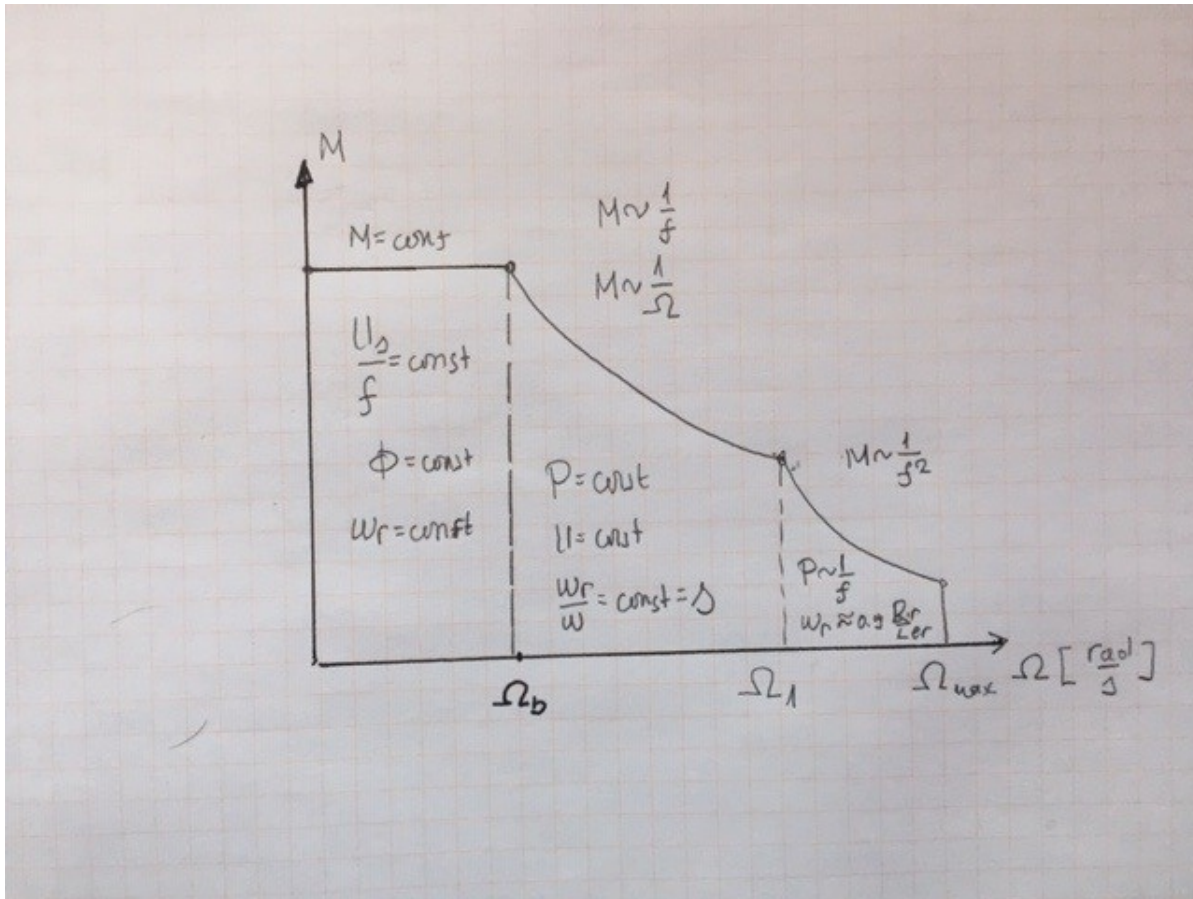 M
M = const
M ~ 1/f
M ~ 1/Ω
Us/f = const
ϕ = const
ωr = const
P = const
U = const
ωr/ω = const = s
M ~ 1/f²
P ~ 1/f
ωr ≈ 0.9
Ωb
Ω1
Ωmax
Ω [rad/s]